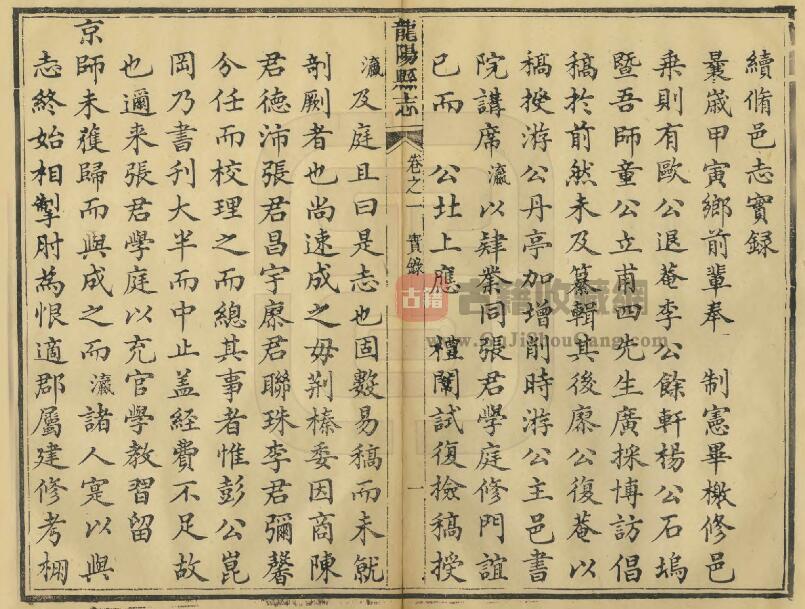 續脩邑志實録
曩歲甲寅鄉前輩奉 制憲畢檄修邑
乘則有歐公退菴李公餘軒楊公石塢
暨吾師童公立甫四先生廣採博訪倡
稿於前然未及纂輯其後廖公復菴以
稿授游公丹亭加增削時游公主邑書
院講席瀛以肄業同張君學庭修門誼
已而 公北上應 禮闈試復檢稿授
龍陽縣志
卷之一 實錄
一
瀛及庭且曰是志也固數易稿而未就
剞劂者也尚速成之毋荆榛委因商陳
君德沛張君昌宇廖君聯珠李君彌馨
分任而校理之而總其事者惟彭公崑
岡乃書刊大半而中止盖經費不足故
也邇来張君學庭以充官學教習留
京師未獲歸而與成之而瀛諸人寔以與
志終始相掣肘為恨適郡屬建修考棚
古籍
古籍收藏網
www.GuJiShouCang.com